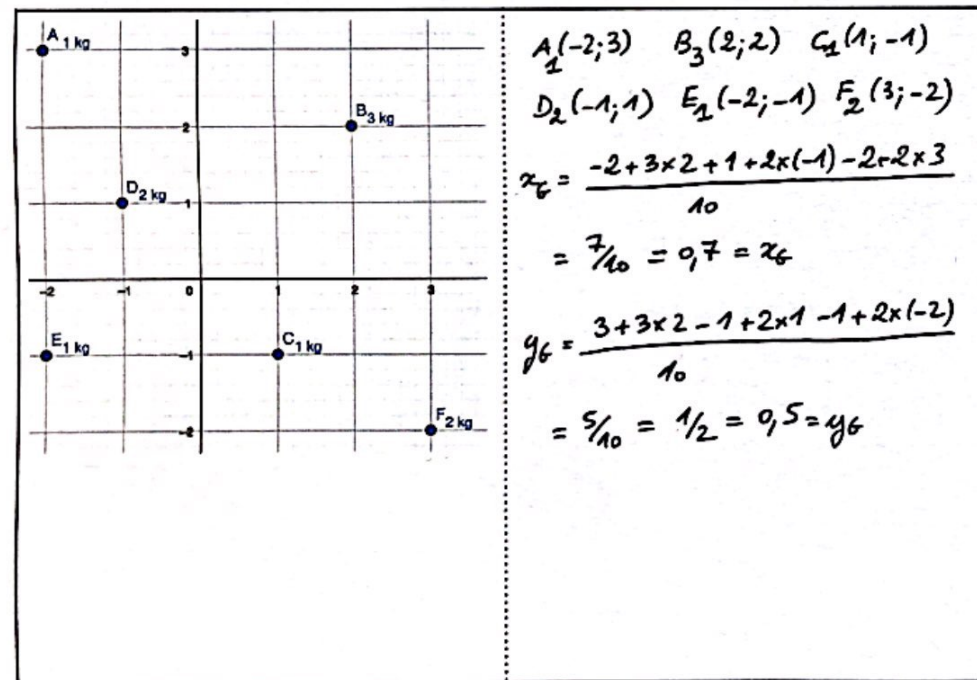 A 1 kg
3
B 3 kg
2
D 2 kg
1
-2 -1 0 1 2 3
E 1 kg
C 1 kg
-1
F 2 kg
-2
A₁(-2;3) B₃(2;2) C₁(1;-1)
D₂(-1;1) E₁(-2;-1) F₂(3;-2)
x_G = (-2+3×2+1+2×(-1)-2+2×3)/10
= 7/10 = 0,7 = x_G
y_G = (3+3×2-1+2×1-1+2×(-2))/10
= 5/10 = 1/2 = 0,5 = y_G